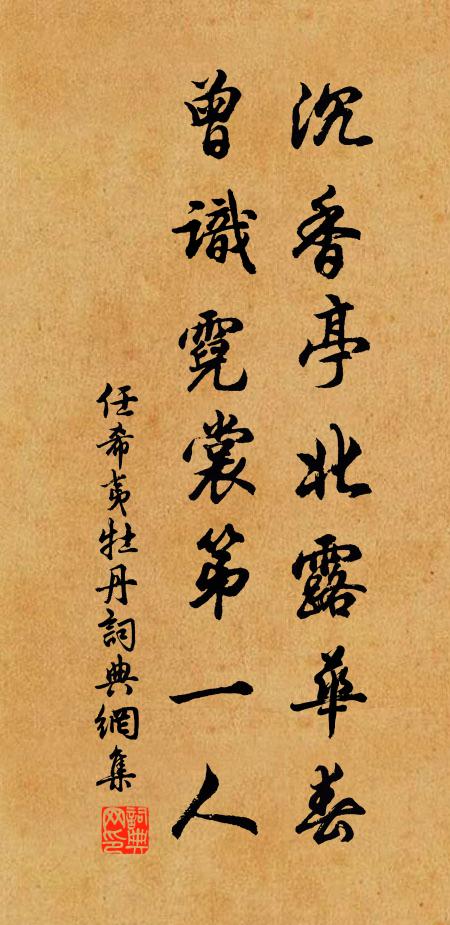 沉香亭北露華春
曾識霓裳第一人
任希夷牡丹詞典網集
詞典網印